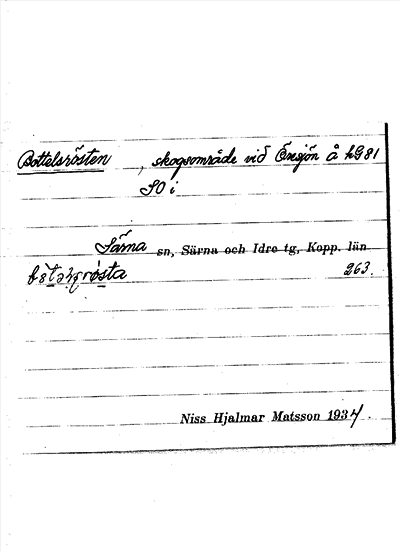 Bottelsrösten, skogsområde vid Örasjön å hG81
SO i
Särna sn, Särna och Idre tg, Kopp. län
263.
Niss Hjalmar Matsson 1934.